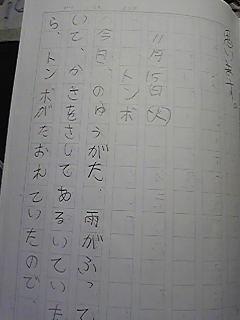 思います。
11月15日(火)
トンボ
今日、のゆうがた、雨がふって
いて、かさをさしてあるいていた
ら、トンボがたおれていたので、